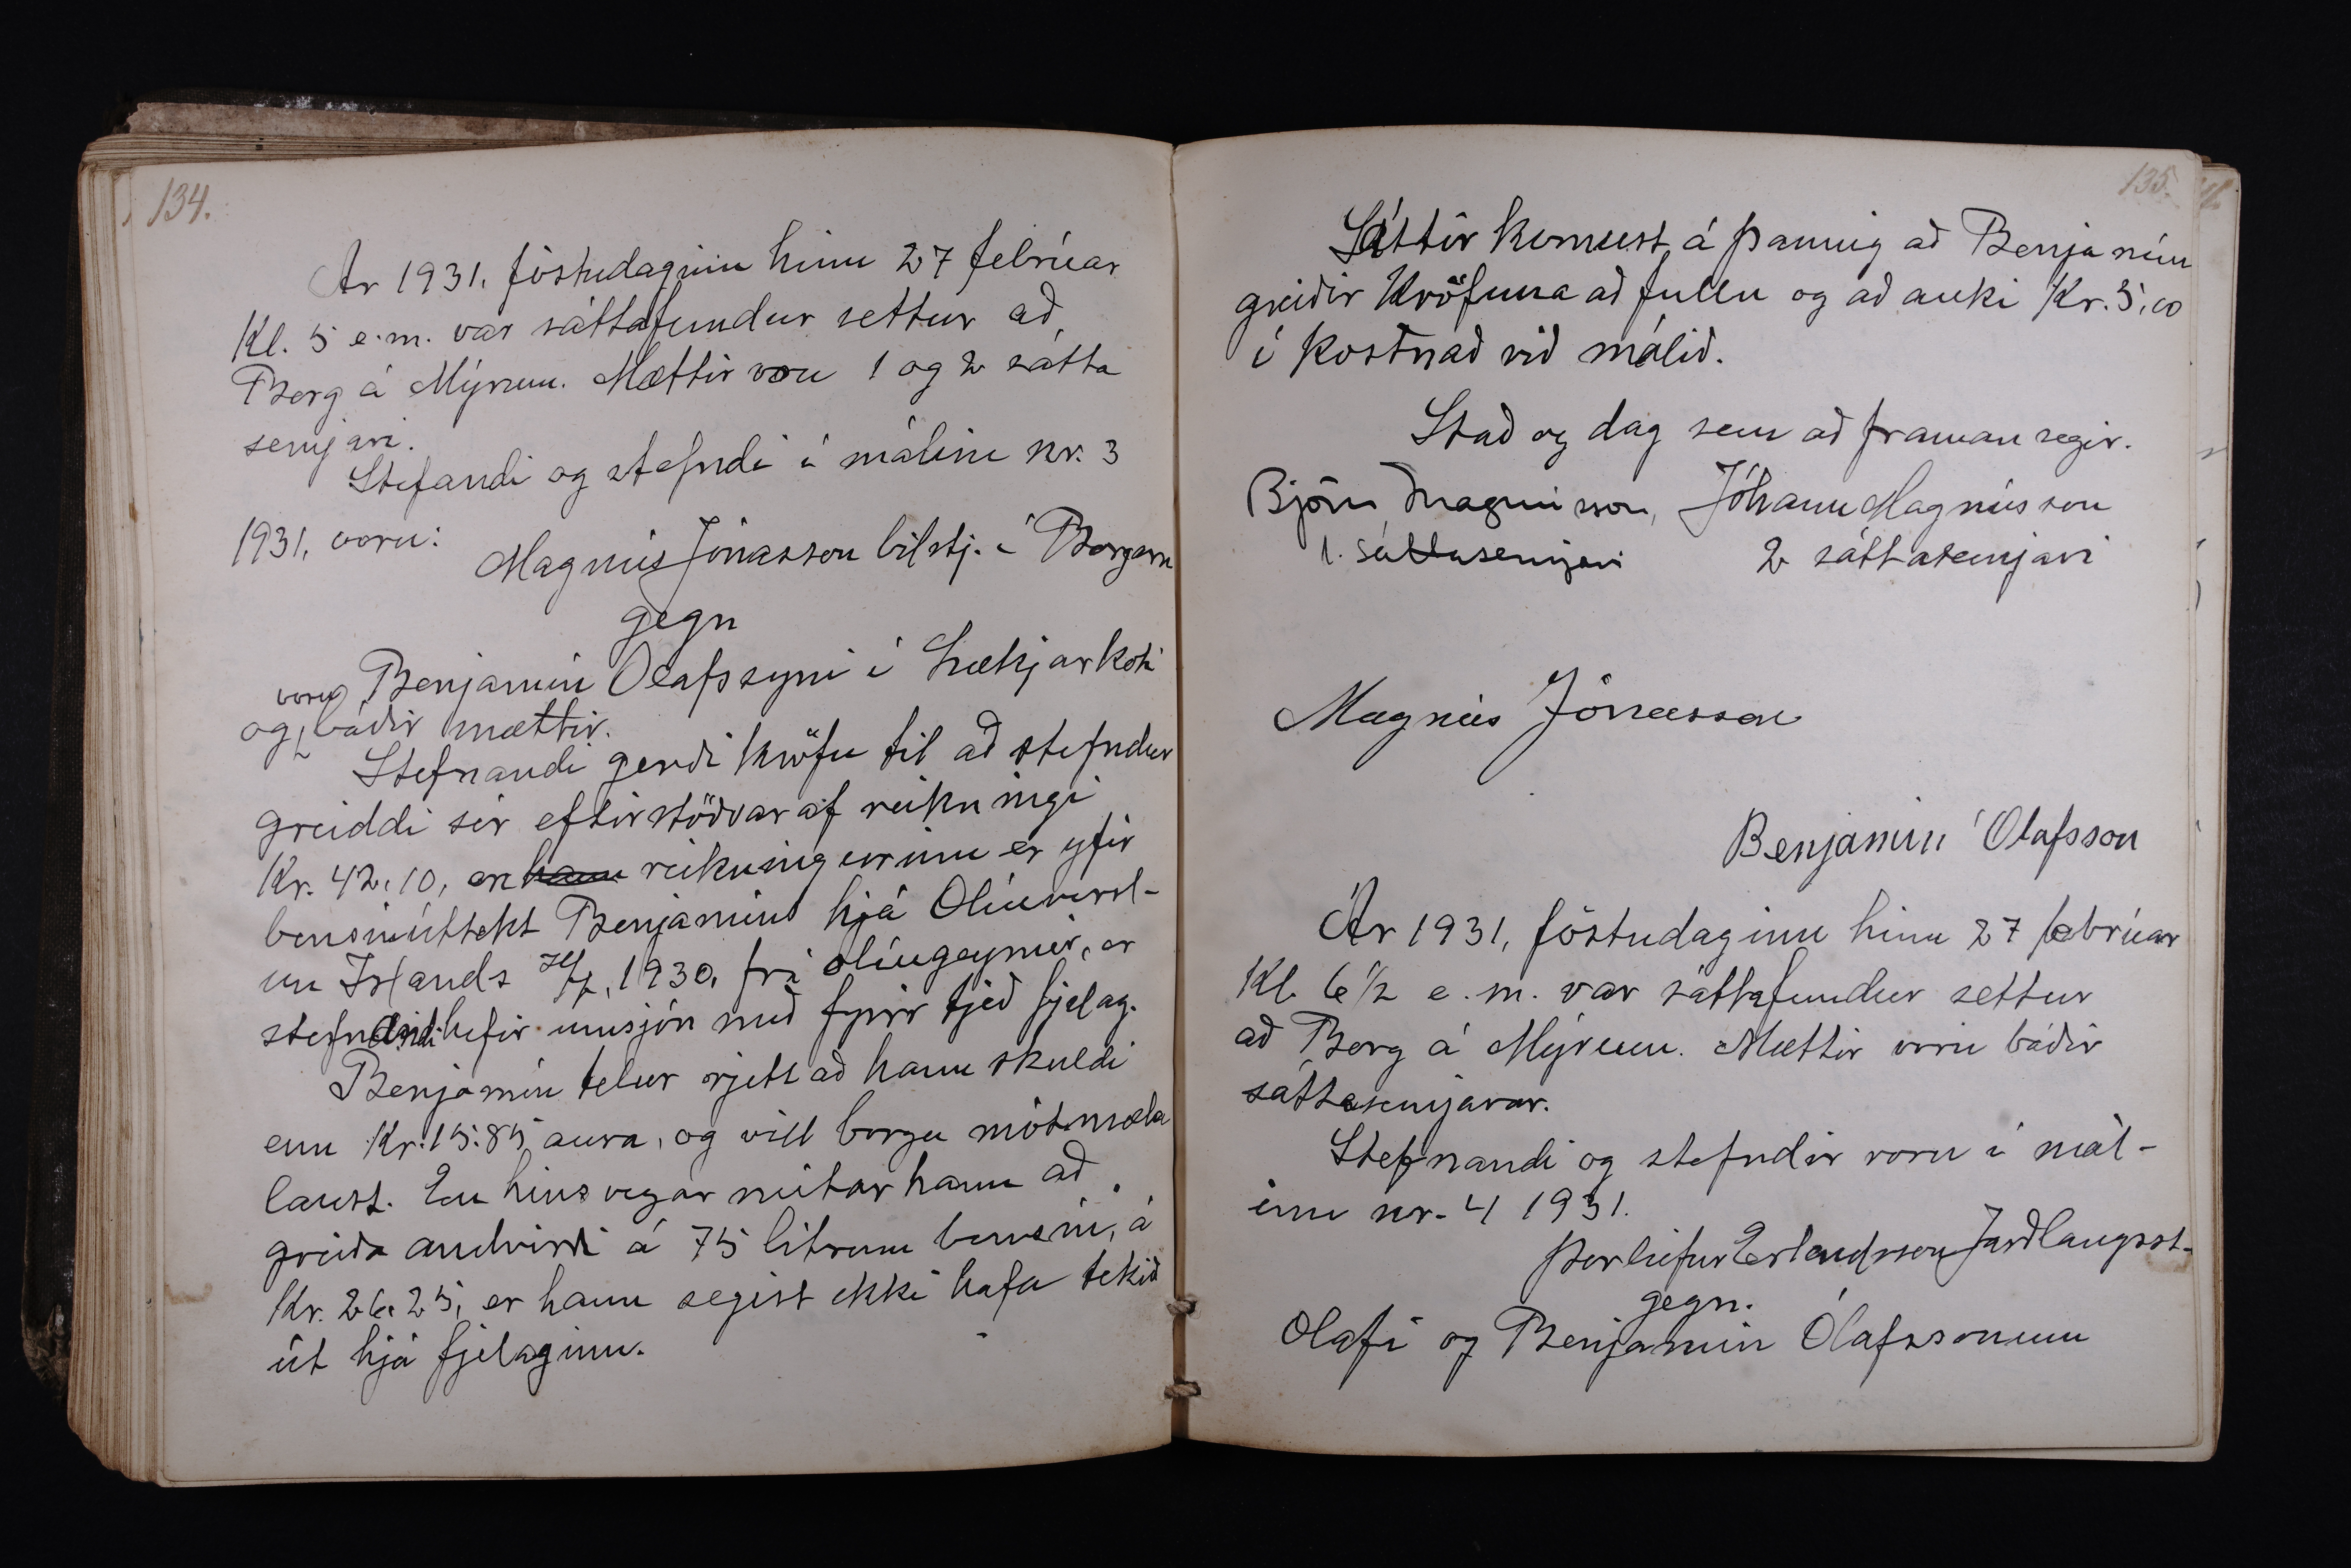 134.
Ár 1931, föstudaginn hinn 27 febrúar
Kl. 5 e.m. var sáttafundur settur að
Borg á Mýrum. Mættir voru 1 og 2 sátta
semjari.
Stefandi og stefndi í málinu nr. 3
1931, voru:
Magnús Jónasson bílstj. í Borgarn
gegn
Benjamín Ólafssyni í Lækjarkoti
og voru báðir mættir.
Stefnandi gerði kröfu til að stefndur
greiddi sér eftirstöðvar af reikningi
Kr. 42,10, en hann reikningurinn er yfir
bensínúttekt Benjamíns hjá Olíuversl-
un Íslands 1930, frá olíugeymir, er
stefnandi hefir umsjón með fyrir tjeð fjelag.
Benjamín telur rjett að hann skuldi
enn Kr. 15.85 aura, og vill borga mótmæla
laust. En hinsvegar neitar hann að
greiða andvirði á 75 lítrum bensín, á
Kr. 26.25, er hann segist ekki hafa tekið
út hjá fjelaginu.
135.
Sáttir komust á þannig að Benjamín
greiðir kröfuna að fullu og að auki Kr. 5,00
í kostnað við málið.
Stað og dag sem að framan segir.
Björn Magnússon, Jóhann Magnússon
1. sáttasemjari 2 sáttasemjari
Magnús Jónasson
Benjamín Ólafsson
Ár 1931, föstudaginn hinn 27 febrúar
Kl. 6 1/2 e.m. var sáttafundur settur
að Borg á Mýrum. Mættir voru báðir
sáttasemjarar.
Stefnandi og stefndir voru í mál-
inu nr. 4 1931.
Þorleifur Erlendsson Jarðlangsst.
gegn.
Olafi og Benjamín Ólafssonum